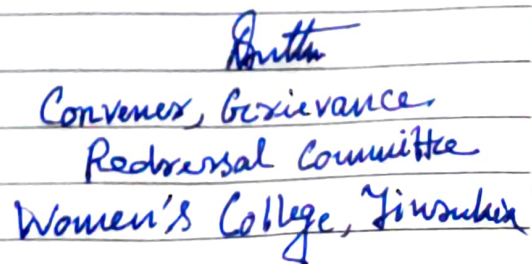 Convener, Grievance
Redressal Committee
Women's College, Tinsukia